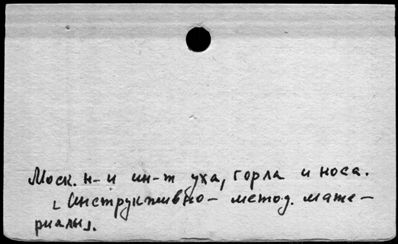 Моск. н-и ин-т уха, горла и носа.
[Инструктивно-метод. мате-
риалы].